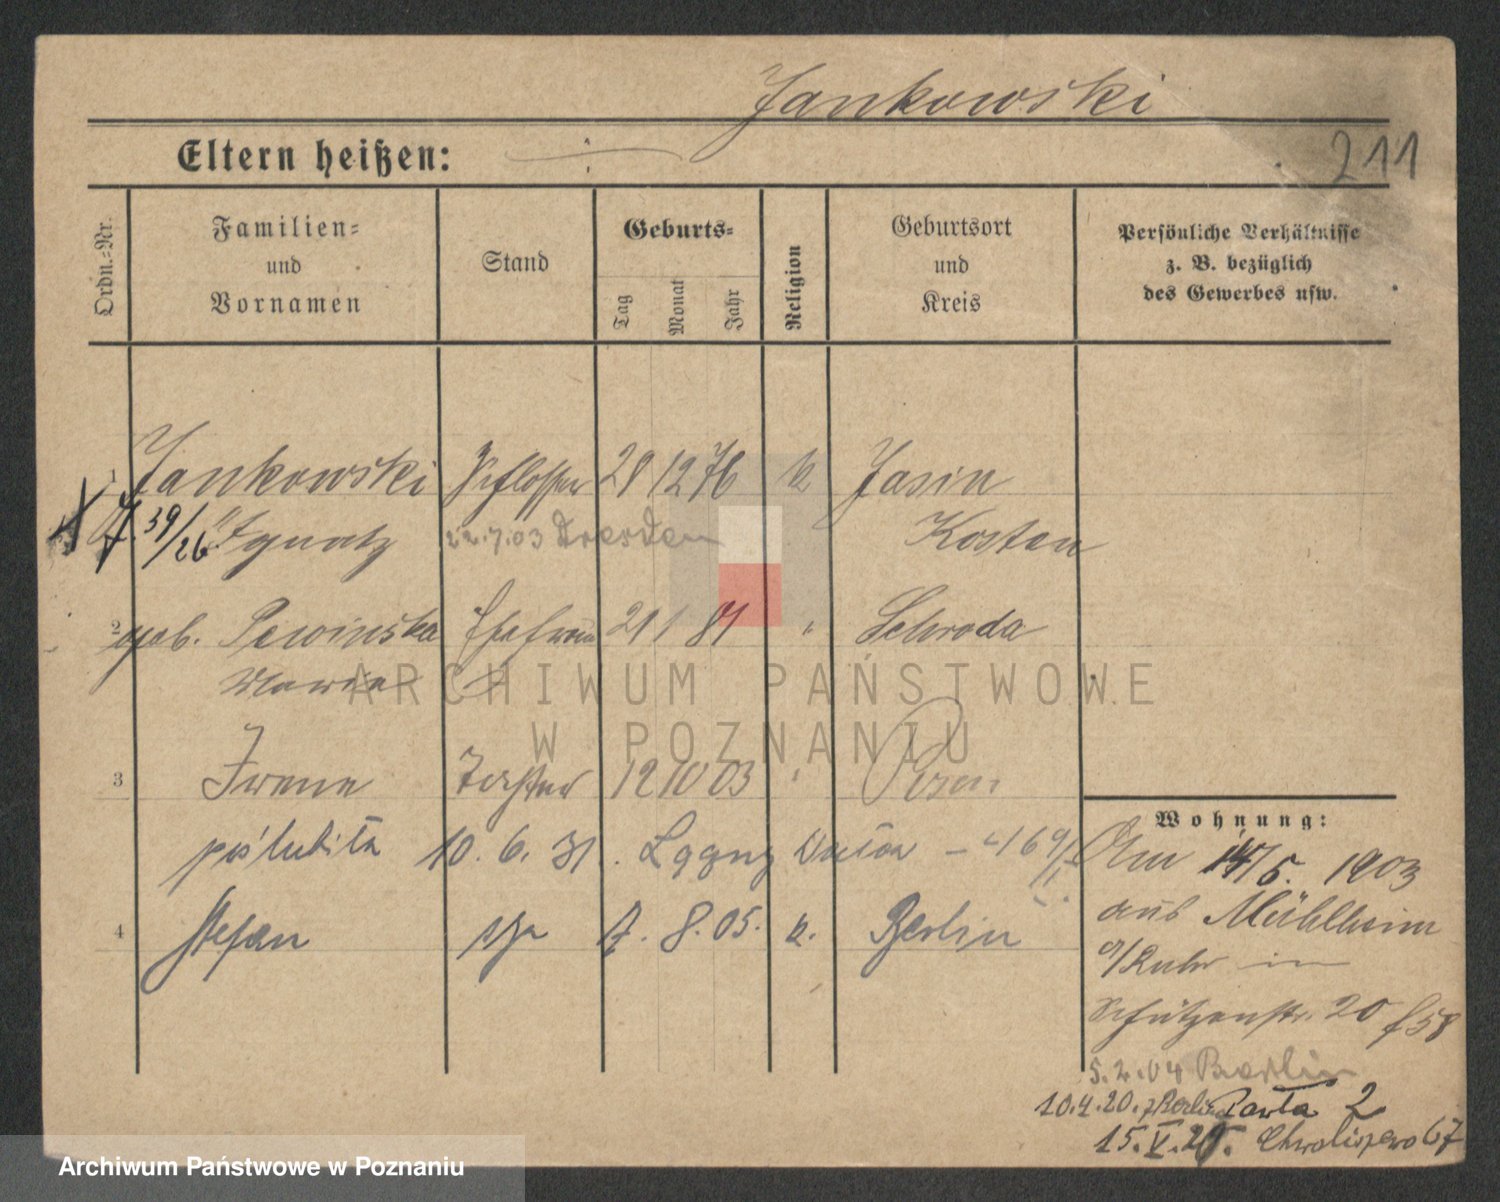 Jankowski
Eltern heißen:
211
Ordn.-Nr.
Familien-
und
Vornamen
Stand
Geburts-
Tag
Monat
Jahr
Religion
Geburtsort
und
Kreis
Persönliche Verhältnisse
z. B. bezüglich
des Gewerbes usw.
1 Jankowski Schlosser 28 12 76 k Jasin
39/26 Ignatz 22.7.03 Dresden Kosten
2 geb. Pewinska Ehefrau 21 1 81 " Schroda
Maria
3 Irene Tochter 12 10 03 " Posen
poślubiła 10. 6. 31.
4 Stefan 7. 8. 05. k. Berlin
Wohnung:
Am 14/5. 1903
aus Mühlheim
a/Ruhr in
Schützenstr. 20
5.2.04 Berlin
10.4.20. z Berlina Warta 2
15.V.21. Chwaliszewo 67
ARCHIWUM PAŃSTWOWE
W POZNANIU
Archiwum Państwowe w Poznaniu